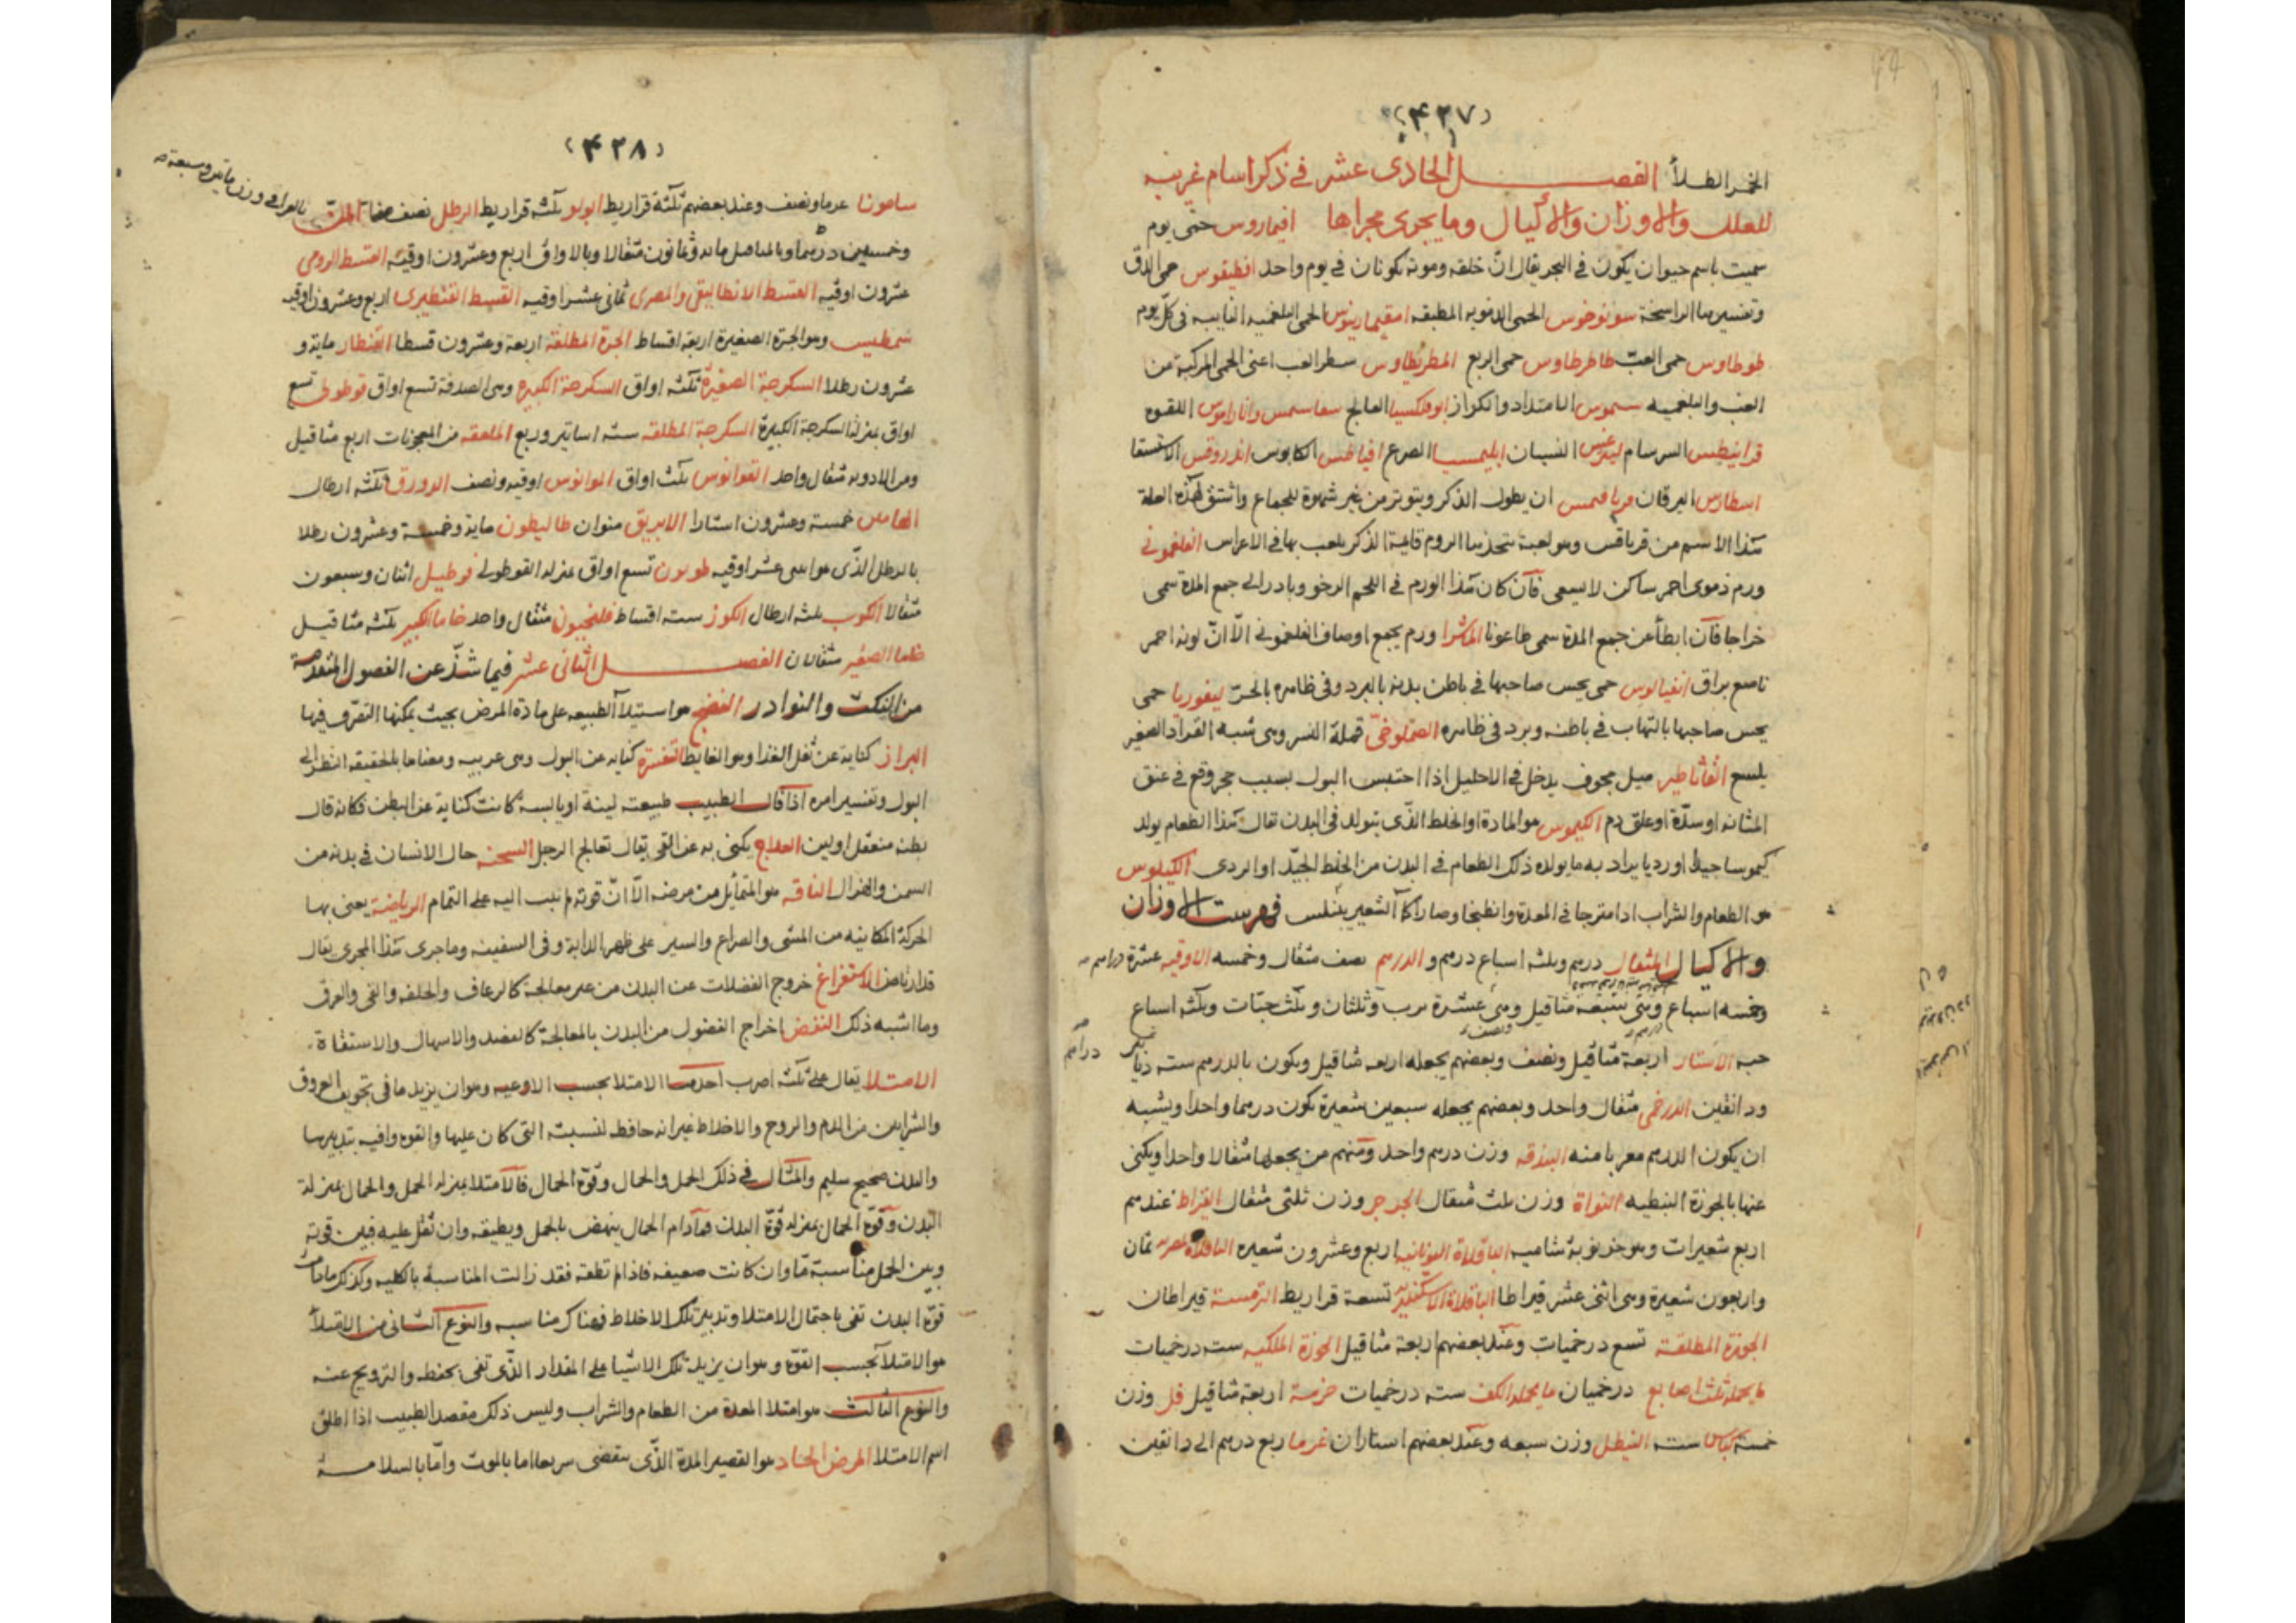 (٤٢٧)
الخمر الطلاء الفصل الحادى عشر فى ذكر اسام غريبه
للعلل والاوزان والاكيال وما يجرى مجراها افيماروس حمى يوم
سميت باسم حيوان يكون فى البحر يقال ان خلقه وموته يكونان فى يوم واحد افطيقوس حمى الدق
وتفسيرها الراسخة سونوخوس الحمى الدمويه المطبقه امقيمارينوس الحمى البلغميه النايبه فى كل يوم
طوطاوس حمى الغب طاطرطاوس حمى الربع المطريطاوس سطر الغب اعنى الحمى المركبة من
الغب والبلغميه سموس الامتداد والكزاز ابوفلكسيا الفالج اللقوه
قرانيطس السرسام ليثرغس النسيان ابليمسيا الصرع افيالطس الكابوس اندروقس الاستسقا
اليرقان فريافسمس ان يطول الذكر ويتوتر من غير شهوة للجماع واشتق لهذه العلة
هذا الاسم من فريافس وهو لعبة يتخذها الروم قايمة الذكر يلعب بها فى الاعراس الفلغمونى
ورم دموى احمر ساكن لا يسعى فان كان هذا الورم فى اللحم الرخو وبادر الى جمع المدة سمى
خراجا فان ابطأ عن جمع المدة سمى طاعونا الماشرا ورم يجمع اوصاف الفلغمونى الا ان لونه احمر
ناصع براق انفيالوس حمى يحس صاحبها فى باطن بدنه بالبرد وفى ظاهره بالحر ليفوريا حمى
يحس صاحبها بالتهاب فى باطنه وبرد فى ظاهره قملة النسر وهى شبه القراد الصغير
يلسع القاثاطير ميل مجوف يدخل فى الاحليل اذا احتبس البول بسبب حجر وقع فى عنق
المثانه او سدة او علق دم الكيموس هو المادة او الخلط الذى يتولد فى البدن تقال هذا الطعام يولد
كيموسا جيدا او رديا يراد به ما يولده ذلك الطعام فى البدن من الخلط الجيد او الردى الكيلوس
هو الطعام والشراب اذا امتزجا فى المعدة وانطبخا وصارا كماء الشعير فهرست الاوزان
والاكيال المثقال درهم وثلثه اسباع درهم والدرهم نصف مثقال وخمسه الاوقيه عشرة دراهم
وخمسه اسباع وهى سبعه مثاقيل ونصف وهى عشرة وثلثان وثلث حبات وثلثه اسباع
حبه الاستار اربعة مثاقيل ونصف وبعضهم يجعله اربعه مثاقيل ويكون بالدرهم سته دراهم
ودانقين الدرخمى مثقال واحد وبعضهم يجعله سبعين شعيرة يكون درهما واحدا ويشبه
ان يكون الدرهم معربا منه البندقه وزن درهم واحد ومنهم من يجعلها مثقالا واحدا ويكنى
عنها بالجوزة النبطيه النواة وزن ثلث مثقال الجرجر وزن ثلثى مثقال القيراط عندهم
اربع شعيرات وهو خرنوبة شاميه الباقلاة اليونانيه اربع وعشرون شعيره الباقلاة المصريه ثمان
واربعون شعيرة وهى اثنى عشر قيراطا الباقلاة الاسكندريه تسعة قراريط الترمسة قيراطان
الجوزة المطلقة تسع درخميات وعند بعضهم اربعة مثاقيل الجوزة الملكيه ست درخميات
ما يحمله ثلث اصابع درخميان ما يحمله الكف سته درخميات حزمة اربعة مثاقيل وزن
خمسة سته النيطل وزن سبعه وعند بعضهم استاران غرما ربع درهم الى دانقين
(٤٢٨)
بالعراقى وزن مايتى وسبعة
سامونا غرما ونصف وعند بعضهم ثلثة قراريط ابولو ثلثه قراريط الرطل نصف المن
وخمسين درهما وبالمثاقيل مايه وثمانون مثقالا وبالاواقى اربع وعشرون اوقيه القسط الرومى
عشرون اوقيه القسط الانطاليقى والمصرى ثمانى عشر اوقيه القسط القنطيرى اربع وعشرون اوقيه
وهو الجرة الصغيرة اربعة اقساط الجرة المطلقة اربعة وعشرون قسطا القنطار ماية و
عشرون رطلا السكرجة الصغيرة ثلثه اواق السكرجة الكبيره وهى الصدفة تسع اواق قوطولى تسع
اواق بمنزلة السكرجة الكبيرة السكرجة المطلقه سته اساتير وربع الملعقه من المعجونات اربع مثاقيل
ومن الادويه مثقال واحد القوانوس ثلث اواق اوقيه ونصف الدورق ثلثه ارطال
خمسة وعشرون استارا الابريق منوان طاليطون ماية وخمسة وعشرون رطلا
بالرطل الذى هو اثنى عشر اوقيه تسع اواق بمنزله القوطولى اثنان وسبعون
مثقالا الكوب ثلثه ارطال الكوز سته اقساط فلنجيون مثقال واحد خاما الكبير ثلثه مثاقيل
خاما الصغير مثقالان الفصل الثانى عشر فيما شذ عن الفصول المتقدمة
من النكت والنوادر النضج هو استيلا الطبيعه على مادة المرض بحيث يمكنها التصرف فيها
البراز كنايه عن ثفل الغذا وهو الغايط التفسرة كنايه عن البول وهى عربيه ومعناها بالحقيقه النظر الى
البول وتفسير امره اذا قال الطبيب طبيعته لينة او يابسة كانت كناية عن البطن فكانه قال
بطنه منعقل او لين العلاج يكنى به عن القى يقال تعالج الرجل السحنه حال الانسان فى بدنه من
السمن والهزال الناقه هو المتماثل من مرضه الا ان قوته لم تثب اليه على التمام الرياضة يعنى بها
الحركة المكانيه من المشى والصراع والسير على ظهر الدابة وفى السفينه وما جرى هذا المجرى يقال
قد ارتاض الاستفراغ خروج الفضلات عن البدن من غير معالجة كالرعاف والخلفه والقى والعرق
وما اشبه ذلك النفض اخراج الفضول من البدن بالمعالجة كالفصد والاسهال والاستقاة
الامتلا يقال على ثلثه اضرب احدها الامتلا بحسب الاوعيه وهو ان يزيد ما فى تجويف العروق
والشرايين من الدم والروح والاخلاط غير انه حافظ لنسبته التى كان عليها والقوه وافيه بتدبيرها
والبدن صحيح سليم والمثال فى ذلك الحمل والحمال وقوة الحمال فالامتلا بمنزله الحمل والحمال بمنزلة
البدن وقوة الحمال بمنزله قوة البدن فمادام الحمال ينهض بالحمل ويطيقه وان ثقل عليه فبين قوته
وبين الحمل مناسبة ما وان كانت ضعيفه فاذا لم تطقه فقد زالت المناسبة بالكليه وكذلك مادامت
قوة البدن تفى باحتمال الامتلا وتدبير تلك الاخلاط فهناك مناسبه والنوع الثانى من الامتلا
هو الامتلا بحسب القوة وهو ان يزيد تلك الاشيا على المقدار الذى تفى بحفظه والترويح عنه
والنوع الثالث هو امتلا المعدة من الطعام والشراب وليس ذلك مقصد الطبيب اذا اطلق
اسم الامتلا المرض الحاد هو القصير المدة الذى ينقضى سريعا اما بالموت واما بالسلامة